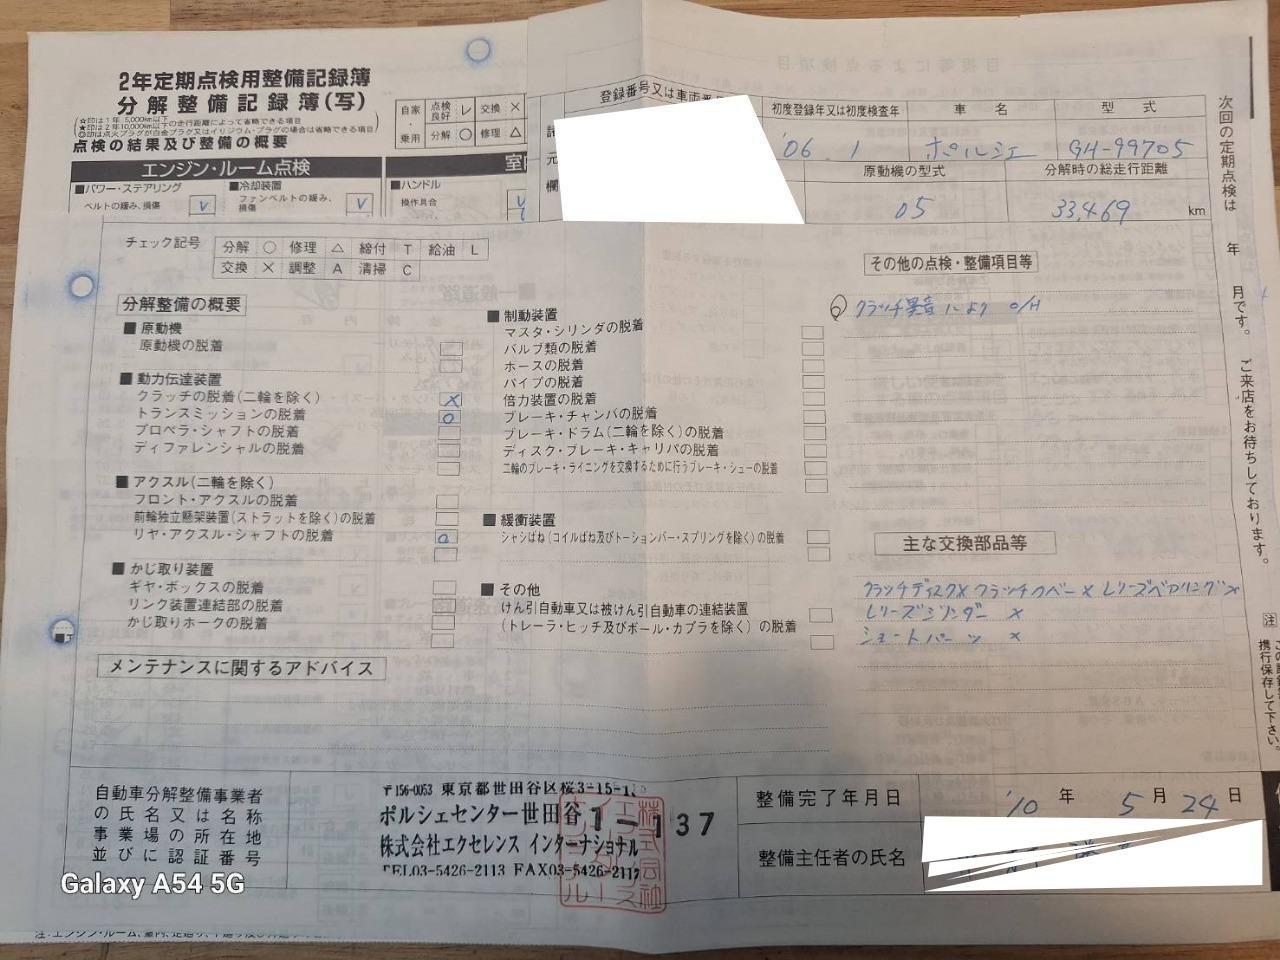 2年定期点検用整備記録簿
分解整備記録簿(写)
☆印は1年 5,000km以下
★印は2年 10,000km以下の走行距離によって省略できる項目
◎印は点火プラグが白金プラグ又はイリジウム・プラグの場合は省略できる項目
点検の結果及び整備の概要
自家・乗用 点検良好 レ 交換 ×
分解 ○ 修理 △
エンジン・ルーム点検
■パワー・ステアリング
ベルトの緩み、損傷 レ
■冷却装置
ファンベルトの緩み、損傷 レ
■ハンドル
操作具合 レ
登録番号又は車両番
初度登録年又は初度検査年 車名 型式
'06.1 ポルシェ GH-99705
原動機の型式 分解時の総走行距離
05 33,469 km
次回の定期点検は 年 月です。ご来店をお待ちしております。
チェック記号 分解 ○ 修理 △ 締付 T 給油 L
交換 × 調整 A 清掃 C
分解整備の概要
■原動機
原動機の脱着
■動力伝達装置
クラッチの脱着(二輪を除く) ×
トランスミッションの脱着 ○
プロペラ・シャフトの脱着
ディファレンシャルの脱着
■アクスル(二輪を除く)
フロント・アクスルの脱着
前輪独立懸架装置(ストラットを除く)の脱着
リヤ・アクスル・シャフトの脱着 ○
■かじ取り装置
ギヤ・ボックスの脱着
リンク装置連結部の脱着
かじ取りホークの脱着
■制動装置
マスタ・シリンダの脱着
バルブ類の脱着
ホースの脱着
パイプの脱着
倍力装置の脱着
ブレーキ・チャンバの脱着
ブレーキ・ドラム(二輪を除く)の脱着
ディスク・ブレーキ・キャリパの脱着
二輪のブレーキ・ライニングを交換するために行うブレーキ・シューの脱着
■緩衝装置
シャシばね(コイルばね及びトーションバー・スプリングを除く)の脱着
■その他
けん引自動車又は被けん引自動車の連結装置
(トレーラ・ヒッチ及びボール・カプラを除く)の脱着
その他の点検・整備項目等
クラッチ異音により O/H
主な交換部品等
クラッチディスク× クラッチカバー× レリーズベアリング×
レリーズシリンダー ×
ショートパーツ ×
メンテナンスに関するアドバイス
自動車分解整備事業者
の氏名又は名称
事業場の所在地
並びに認証番号
〒156-0053 東京都世田谷区桜3-15-1
ポルシェセンター世田谷
1-137
株式会社エクセレンス インターナショナル
TEL03-5426-2113 FAX03-5426-2117
整備完了年月日 '10年 5月 24日
整備主任者の氏名
携行保存して下さい。
Galaxy A54 5G